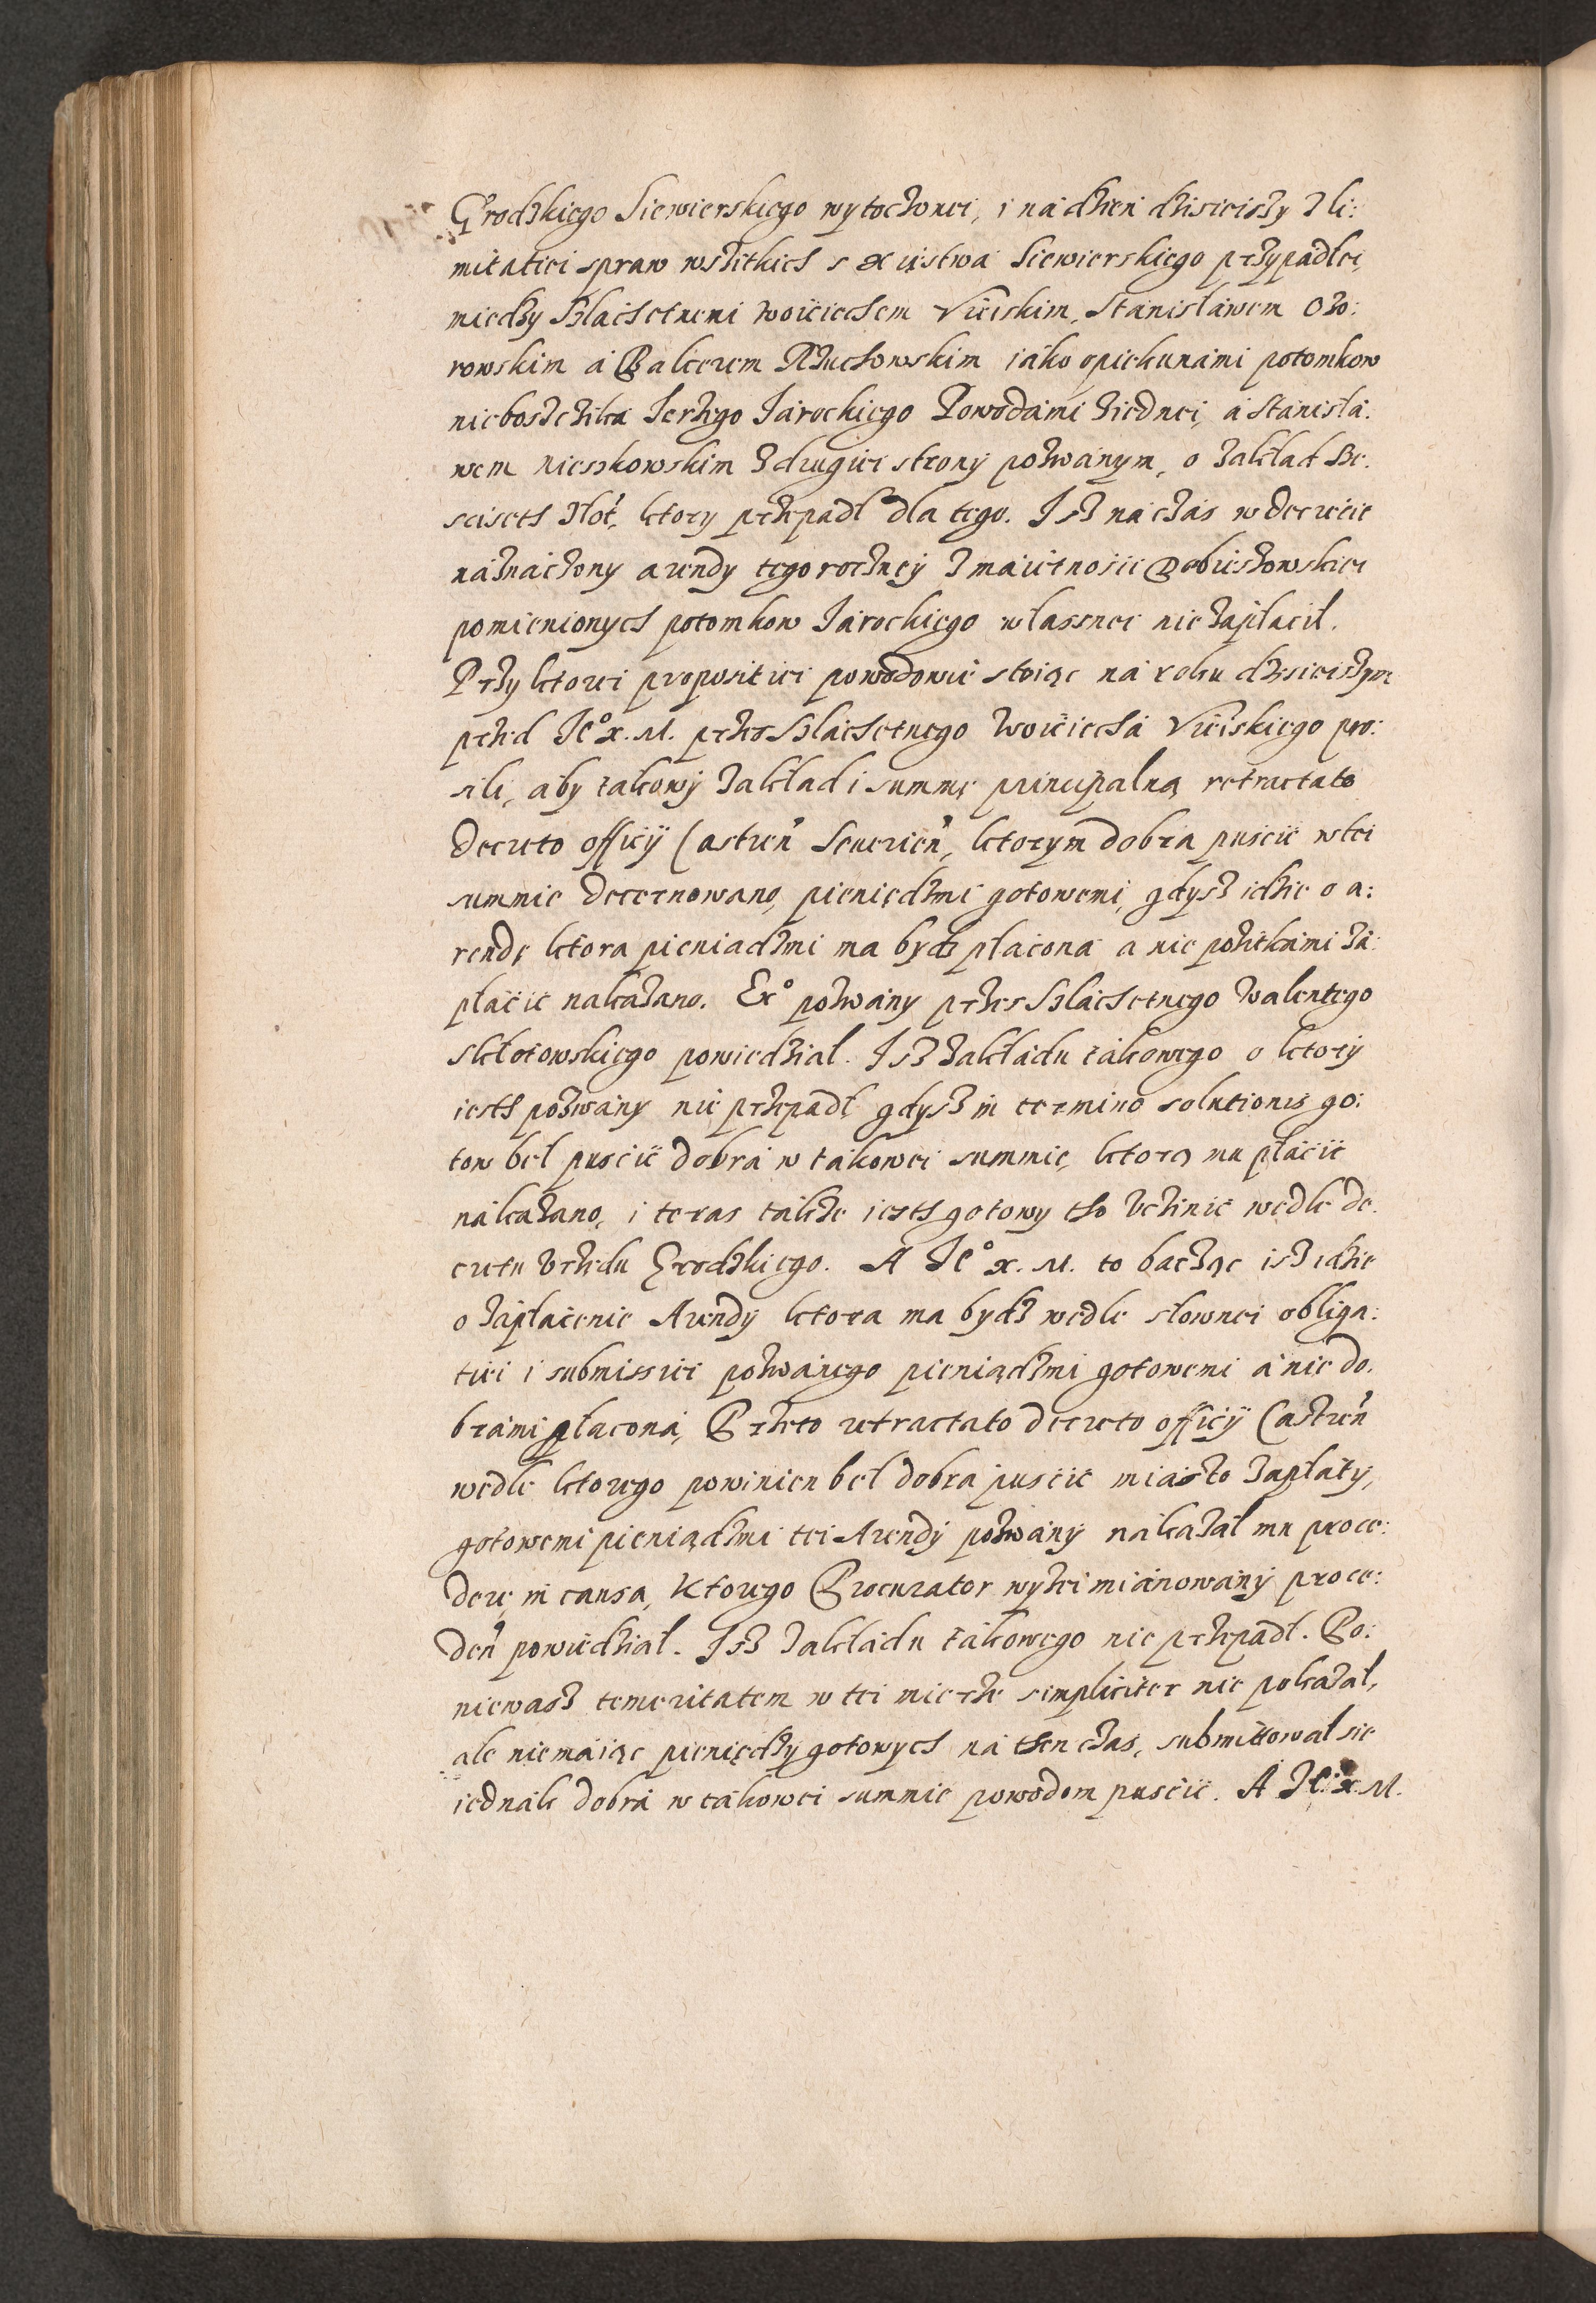 Grodzkiego Siewierskiego wytoczonei, i na dzień dzisieiszy z li:
mitatiei spraw wszitkich s Xięstwa Siewierskiego przypadłei,
miedzy Szlachetnemi Woiciechem Vieiskim, Stanisławem Ozo:
rowskim á Balcerem Młuchowskim iáko opiekunámi potomkow
nieboszczika Jerzego Járockiego Powodámi ziednei, á Stanisłá:
wem Nieszkowskim z drugiei strony pozwánym, o zakład sze:
sciseth złot, ktory przepadł dla tego. Isz ná czás w Decrecie
náznáczony arendy tegorocznéy z maiętnośći Bobiszowskiei
pomienionych potomkow Járockiego własnei nie zápłácił.
Przy ktorei propositiei powodowie stoiąc ná roku dzisieiszym
przed Je° x. M. przes Szlachetnego Woićiechá Vieiskiego pro:
sili, aby takowy zakład i summę principalną retractato
decreto officij Castren Seuerien, ktorym dobra puśćić w tei
summie decernowano, pieniędzmi gotowemi, gdysz idzie o a:
rendę ktora pieniadzmi ma bydz płácona á nie pozitkámi zá:
płáćić nakazano. Ex° pozwány przes Szláchetnego Walentego
Skłotowskiego powiedział. Isz zakłádu tákowego o ktory
iesth pozwány nie przepadł, gdysz in termino solutionis go:
tow beł puśćić dobrá w tákowei summie, ktorą mu płáćić
nákazano, i teras tákże iesth gotowy tho vczinić wedle de:
cretu vrzedu Grodzkiego. A Je° x. M. to bacząc isz idzie
o zápłácenie Arendy ktora ma bydz wedle słownei obliga:
tiei i submissiei pozwánego pieniądzmi gotowemi á nie do:
brámi płacona, Przeto retractato decreto officij Castren
wedle ktorego powinien beł dobrá puśćić miásto zapłáty,
gotowemi pieniądzmi tei Arendy pozwány nákazał mu proce:
dere in causa, Ktorego Procurator wyżei miánowány proce:
den powiedział. Isz zakłádu tákowego nie przepadł. Po:
niewasz temeritatem w tei mierze simpliciter nie pokazał,
ale niemáiąc pieniędzy gotowych ná then czás, submittował sie
iednák dobrá w tákowei summie powodom puśćić. A Je° x. M.